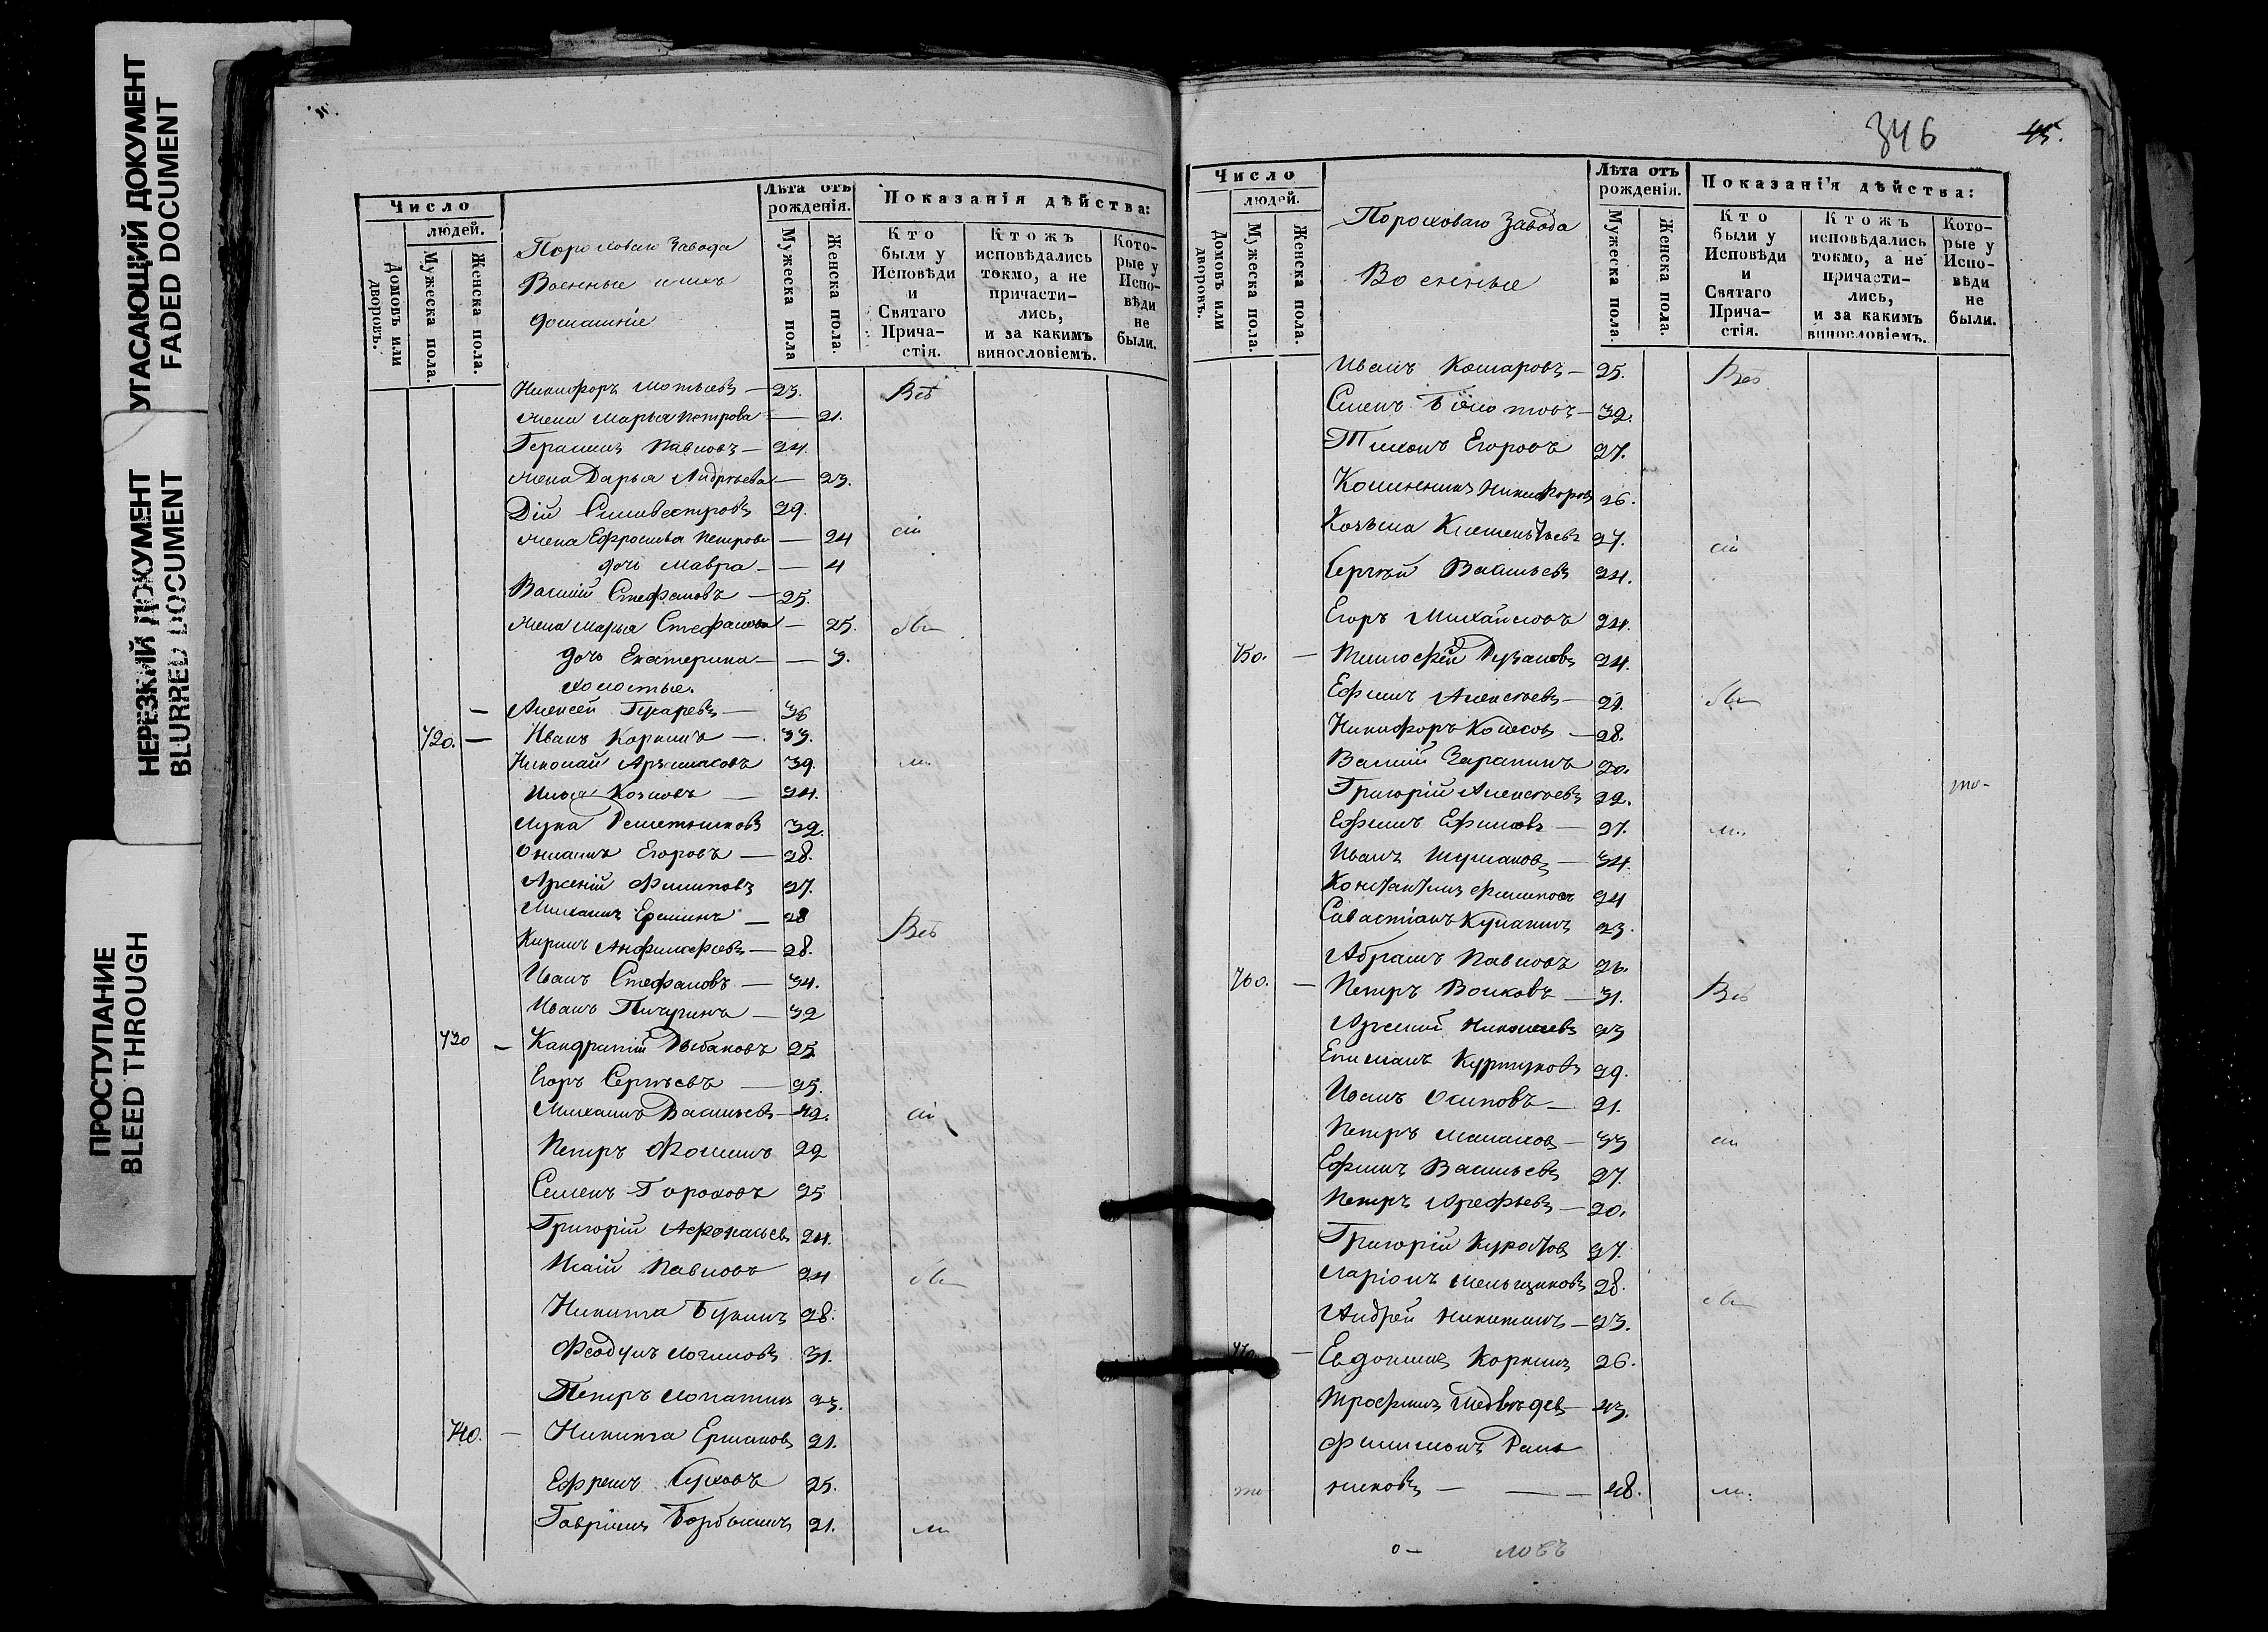 УГАСАЮЩИЙ ДОКУМЕНТ
FADED DOCUMENT
НЕРЕЗКИЙ ДОКУМЕНТ
BLURRED DOCUMENT
ПРОСТУПАНИЕ
BLEED THROUGH
Число
людей.
Домовъ или дворовъ.
Мужеска пола.
Женска пола.
Пороховаго Завода
Военные и ихъ
домашніе
Лѣта отъ рожденія.
Мужеска пола
Женска пола.
Показанія дѣйства:
Кто были у Исповѣди и Святаго Прича-стія.
Ктожъ исповѣдались токмо, а не причасти-лись, и за какимъ винословіемъ.
Кото-рые у Испо-вѣди не были.
Никифоръ — 23. Всѣ
жена Марья Петрова — 21.
Герасимъ Павловъ — 24.
жена Дарья Андрѣева — 23.
Дій Сильвестровъ 29.
жена Ефросинья Петрова — 24 сіи
дочь Мавра — — 4
Василій Стефановъ — 25.
жена Марья Стефанова — 25.
дочь Екатерина — — 3.
холостые.
— Алексей — 36
720. — Иванъ Коркинъ — 33.
Николай 39.
Илья Козловъ — 24.
Лука Решетниковъ 32.
Егоровъ — 28.
Арсеній Филиповъ 27.
Михаилъ — 28
Кирилъ — 28. Всѣ
Иванъ Стефановъ — 34.
Иванъ Пичугинъ — 32
730 — Кандратій Рыбаковъ 25
Егоръ Сергѣевъ — 25.
Михаилъ Васильевъ — 42. сіи
Петръ Фоминъ 22
Семенъ Гороховъ 25
Григорій 24.
Исаій Павловъ 24
Никита Букинъ 28.
Феодулъ Логиновъ 31.
Петръ Лопатинъ 23.
740. — Никита Ермаковъ 21.
Ефремъ Суховъ 25.
Гавріилъ 21. ли
346
45.
Число
людей.
Домовъ или дворовъ.
Мужеска пола.
Женска пола.
Пороховаго Завода
Военные
Лѣта отъ рожденія.
Мужеска пола.
Женска пола.
Показанія дѣйства:
Кто были у Исповѣди и Святаго Прича-стія.
Ктожъ исповѣдались токмо, а не причасти-лись, и за какимъ винословіемъ.
Кото-рые у Испо-вѣди не были.
Иванъ Комаровъ — 25. Всѣ
Семенъ — 32.
Тихонъ Егоровъ 27.
Никифоровъ 26.
Козьма Клементьевъ 27. сіи
Сергѣй Васильевъ 24.
Егоръ Михайловъ 24.
750. — Тимофѣй 24.
Ефимъ Алексѣевъ — 21.
Никифоръ Колесовъ — 28.
Василій 20.
Григорій Алексѣевъ 22.
Ефимъ Ефимовъ — 27. ли.
Иванъ Шумаковъ — 34.
Константинъ Филиповъ 24
Савастіанъ 23.
Абрамъ Павловъ 26.
760. — Петръ Волковъ — 31. Всѣ
Арсеній Николаевъ 23
29.
Иванъ Осиповъ — 21.
Петръ — 33 сіи
Ефимъ Васильевъ 27.
Петръ Арефьевъ — 20.
Григорій Курочовъ 27.
Ларіонъ Мельщиковъ 28.
Андрей Никитинъ — 23.
770. — Евдокимъ Коркинъ 26.
Трофимъ Медвѣдевъ — 43.
Филимонъ
никовъ — — 48. ли.
ловъ